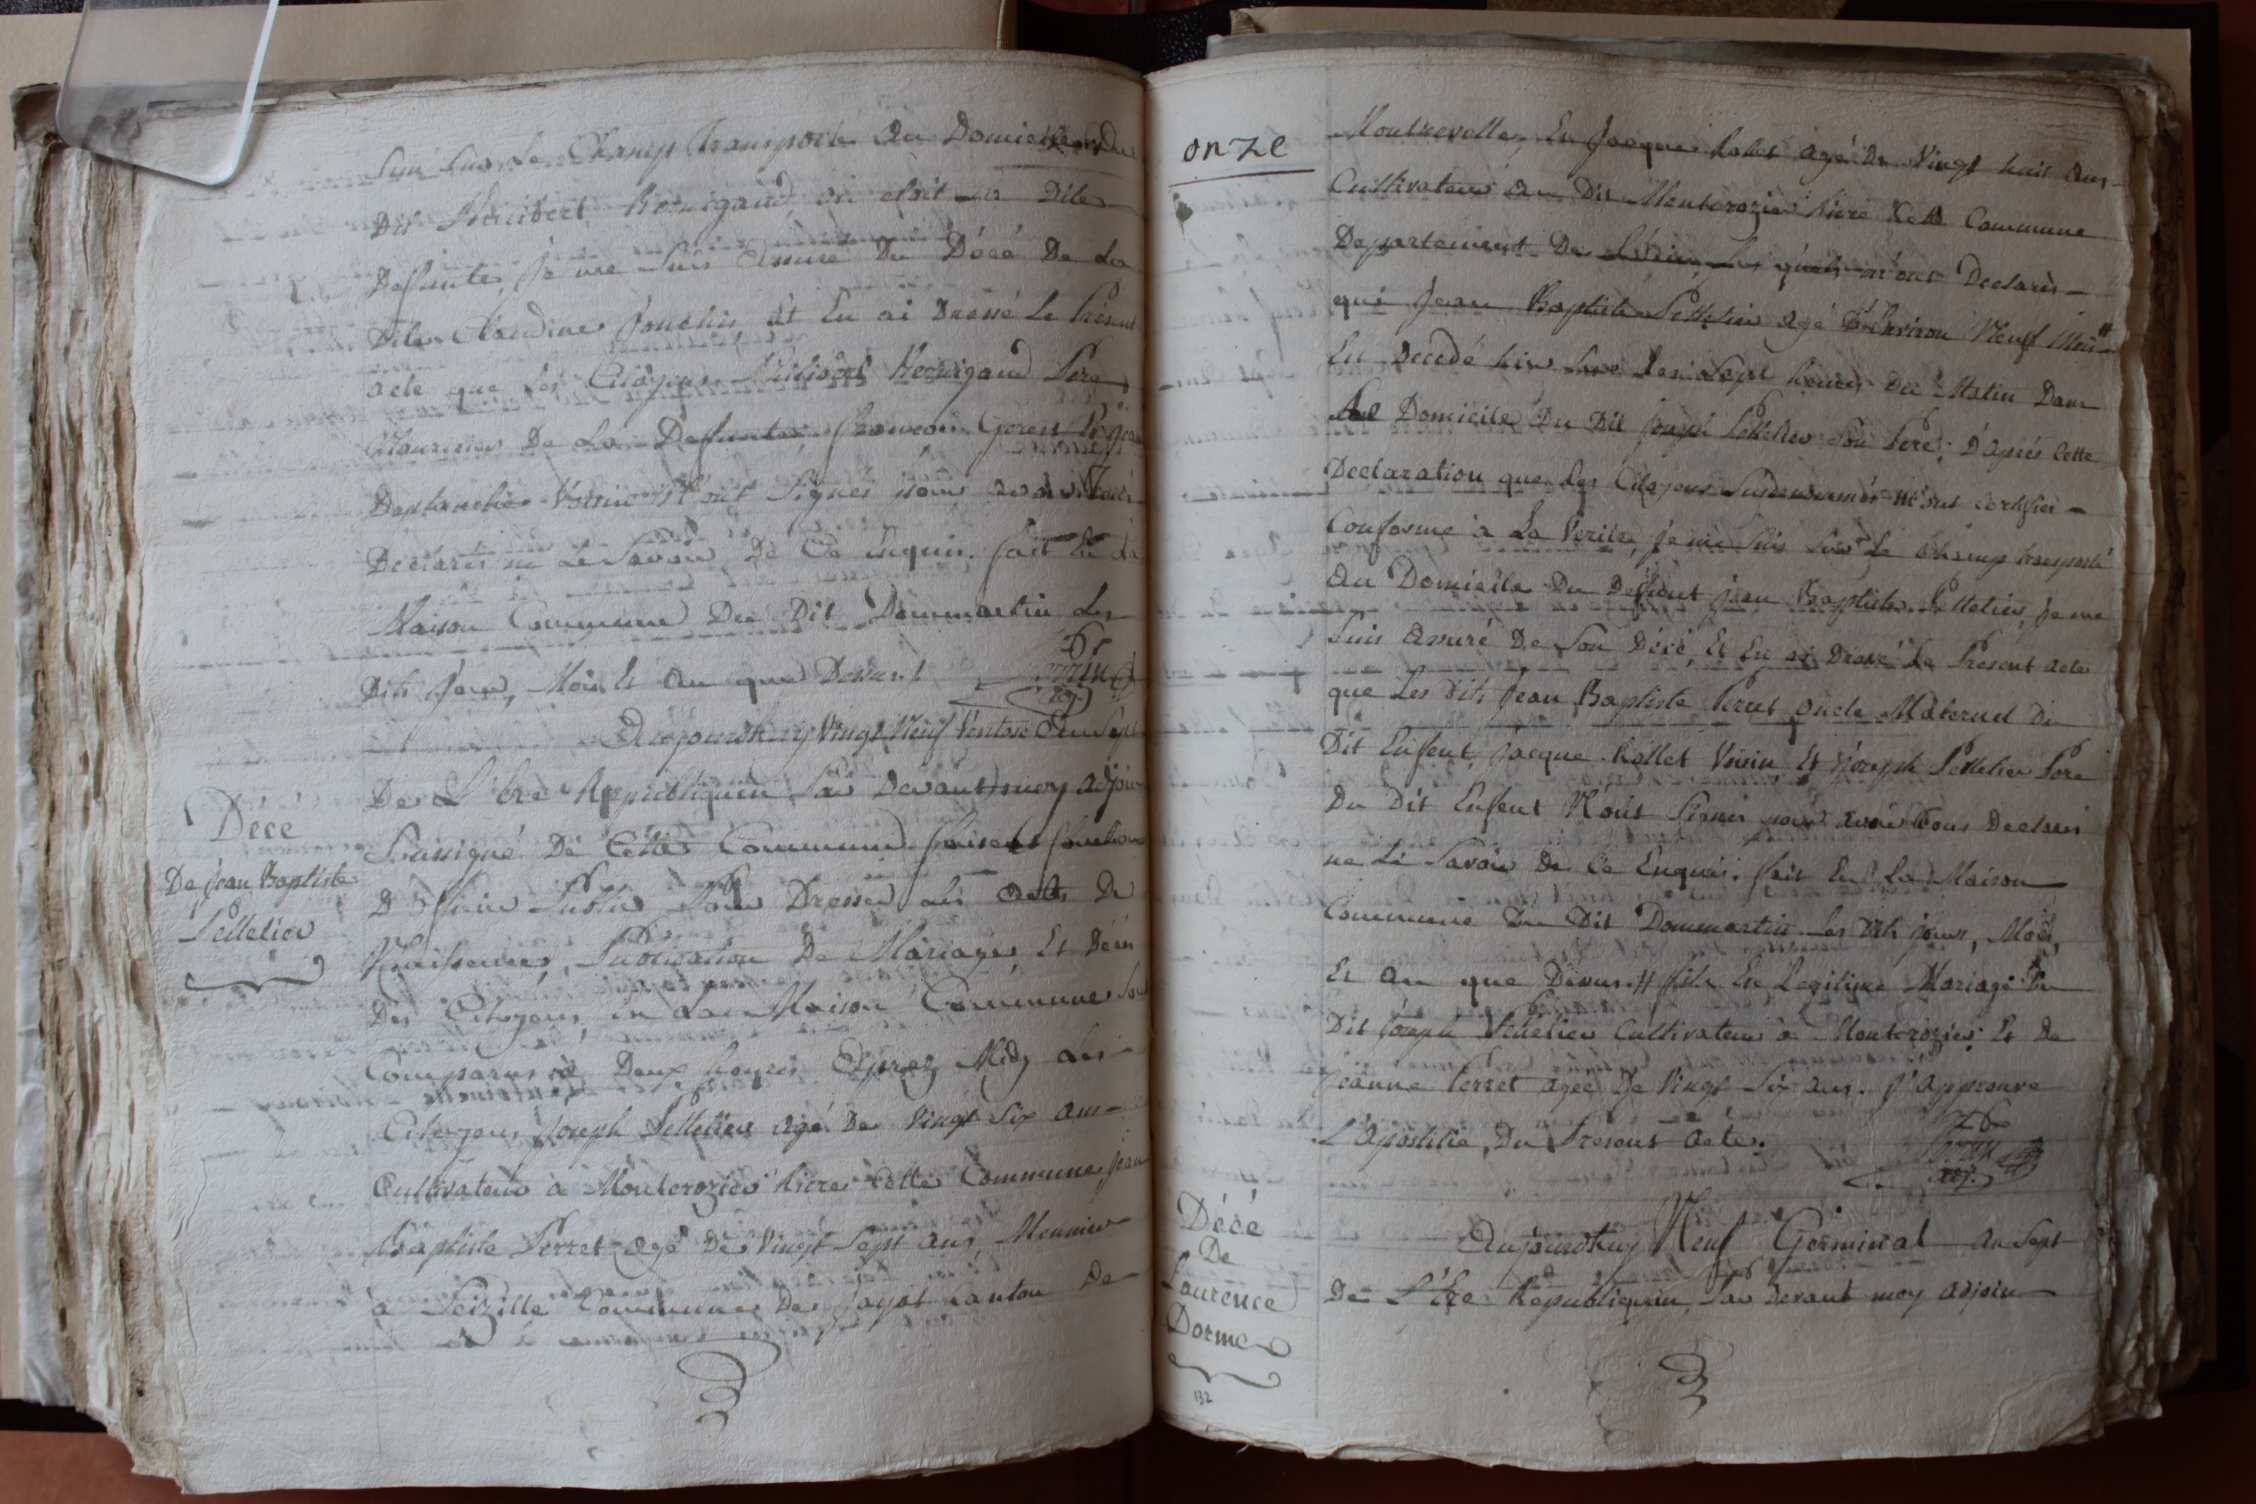 Suis Sur Le Champ Transporté Au Domicille Du
Dit Philibert Revigand où étoit La Dite
Defunte, Je me Suis Assuré Du Décé De La
Dite Claudine Et En ai Dressé Le Présent
acte que Les Citoyens Philibert Revigand Père
De La Defunte, François
Voisin N'ont Signés pour avoir
Déclarés ne Le Savoir De Ce Enquis. fait En La
Maison Commune Du Dit Dommartin Les
Dits Jour, Mois Et An que Devant
adj.
Décé
De Jean Baptiste
Pelletier
Aujourdhuy Vingt Neuf Ventose An Sept
De L'Ere Républiquin, Par Devant moy adjoin
Soussigné De Cette Commune faisent fonction
D'Officier Public Pour Dresser Les actes De
Naissences, Publication De Mariages, Et Décés
Des Citoyens, en La Maison Commune Sont
Comparus à Deux heures Apres Midy Les
Citoyens Joseph Pelletier agé De Vingt Six ans
Cultivateur à Montcrozier Riere Cette Commune, Jean
Baptiste Perret agé De Vingt Sept ans, Meunier
à Seizille Commune De Jayat Canton De
onze
Montrevelle, Et Jacque Rollet agé De Vingt huit Ans
Cultivateur Au Dit Montcrozier Riere Cette Commune
Departement De L'Ain, Les quels m'ont Declarés
que Jean Baptiste Pelletier agé D'Environ Neuf Mois #
Est Decedé hier Sur Les Sept heures Du Matin Dans
Le Domicile Du Dit Joseph Pelletier Son Pere, D'après Cette
Declaration que Les Citoyens Susdenommés M'ont Certifier
Conforme à La Verité, Je me Suis Sur Le Champ transporté
Au Domicile Du Defunt Jean Baptiste Pelletier, Je me
Suis Assuré De Son Décé, Et En ai Dressé Le Present acte
que Les Dits Jean Baptiste Perret Oncle Maternel Du
Dit Enfent, Jacque Rollet Voisin Et Joseph Pelletier Pere
Du Dit Enfent N'ont Signer pour avoir Tous Declarer
ne Le Savoir De Ce Enquis. fait En La Maison
Commune Du Dit Dommartin Les Dits jour, Mois,
Et An que Devens. # fils En Legitime Mariage Du
Dit Joseph Pelletier Cultivateur à Montcrozier Et De
Jeanne Perret agée De Vingt Six ans. J'approuve
L'apostille, Du Present acte.
adj.
Décé
De
Laurence
Dorme
Aujourdhuy Neuf Germinal An Sept
De L'Ere Républiquin, Par Devant moy adjoin
132